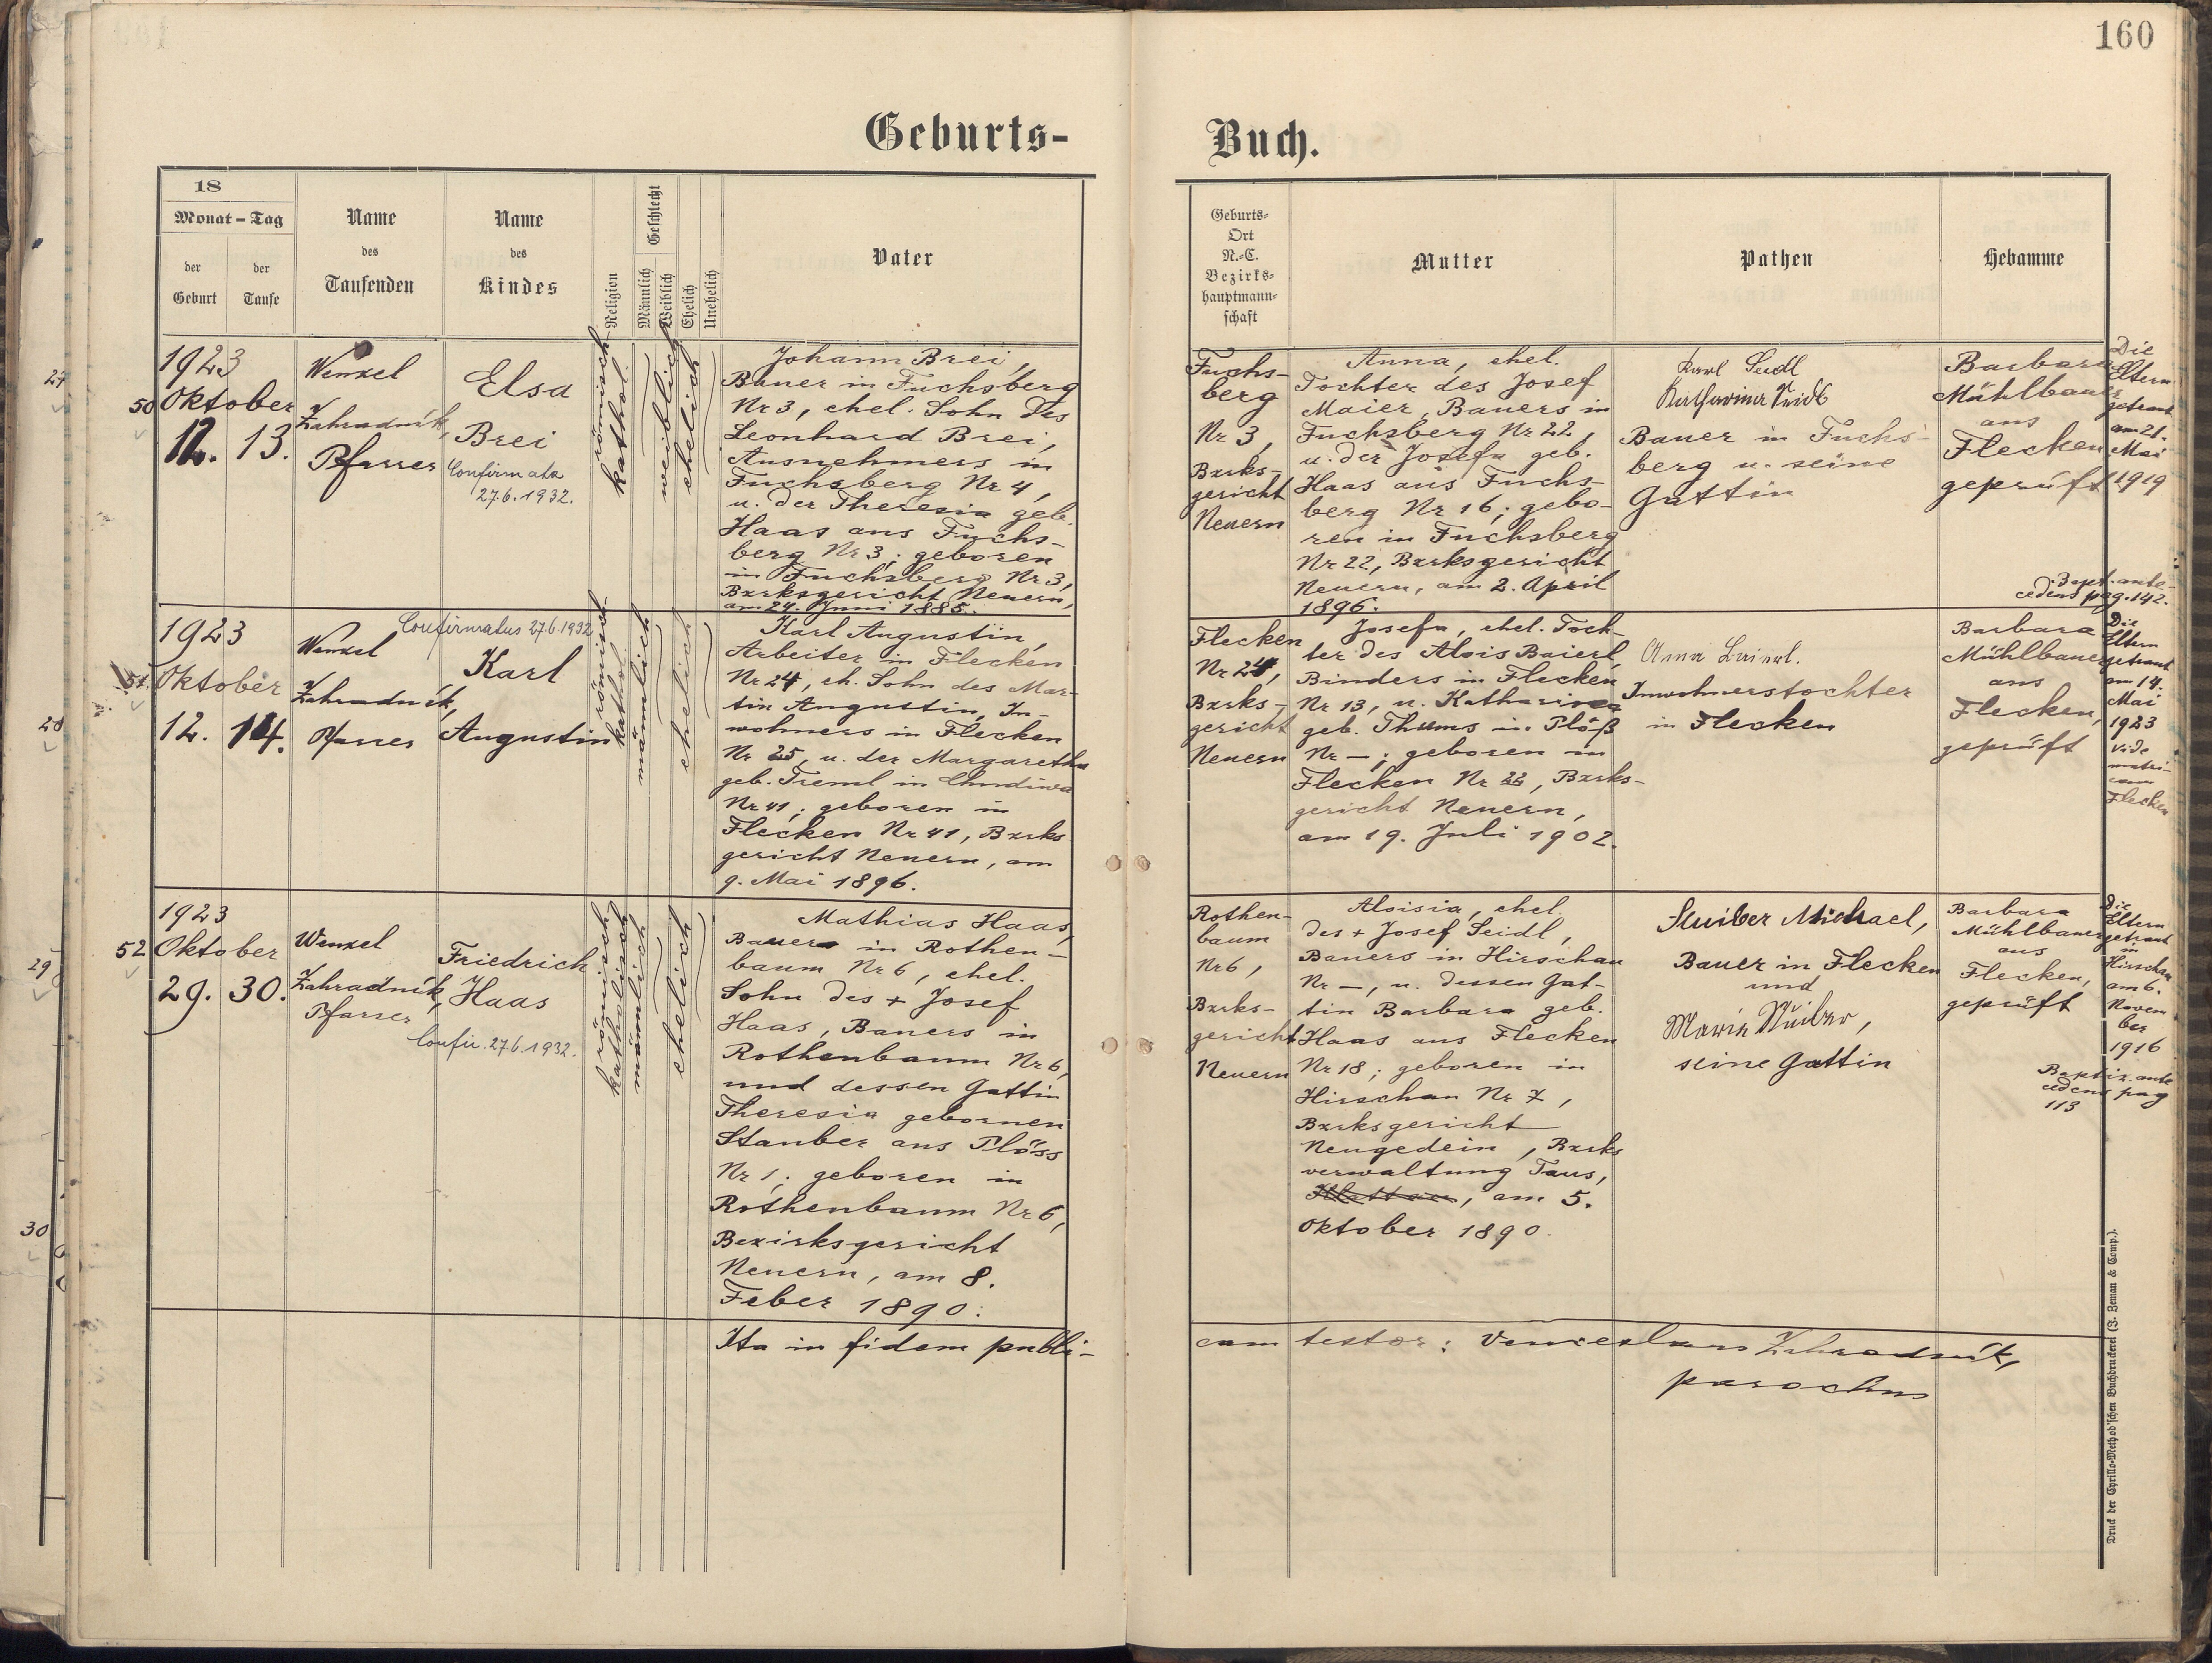 160
Geburts-
Buch.
18
Monat - Tag
der
Geburt
der
Taufe
Name
des
Taufenden
Name
des
Kindes
Religion
Geschlecht
Männlich
Weiblich
Ehelich
Unehelich
Vater
Geburts-
Ort
N.-C.
Bezirks-
hauptmann-
schaft
Mutter
Pathen
Hebamme
27
50
1923
Oktober
12. 13.
Wenzel
Zahradník,
Pfarrer
Elsa
Brei
Confirmata
27.6.1932.
römisch-
kathol.
weiblich
ehelich
Johann Brei,
Bauer in Fuchsberg
Nr 3, ehel. Sohn des
Leonhard Brei,
Ausnehmers in
Fuchsberg Nr 4,
u. der Theresia geb.
Haas aus Fuchs-
berg Nr 3; geboren
in Fuchsberg Nr 3,
Bzrksgericht Neuern,
am 24. Juni 1885.
Fuchs-
berg
Nr 3,
Bzrks-
gericht
Neuern
Anna, ehel.
Tochter des Josef
Maier, Bauers in
Fuchsberg Nr 22,
u. der Josefa geb.
Haas aus Fuchs-
berg Nr 16; gebo-
ren in Fuchsberg
Nr 22, Bzrksgericht
Neuern, am 2. April
1896.
Karl Seidl
Katharina Seidl
Bauer in Fuchs-
berg u. seine
Gattin
Barbara
Mühlbauer
aus
Flecken
geprüft
Die
Eltern
getraut
am 21.
Mai
1919
Bapt. ante-
cedens pag. 142.
28
51.
1923
Oktober
12. 14.
Confirmatus 27.6.1932
Wenzel
Zahradník,
Pfarrer
Karl
Augustin
römisch-
kathol.
männlich
ehelich
Karl Augustin,
Arbeiter in Flecken
Nr 24, eh. Sohn des Mar-
tin Augustin, In-
wohners in Flecken
Nr 25, u. der Margaretha
geb. Treml in Chudiwa
Nr 41; geboren in
Flecken Nr 41, Bzrks
gericht Neuern, am
9. Mai 1896.
Flecken
Nr 24,
Bzrks-
gericht
Neuern
Josefa, ehel. Toch-
ter des Alois Baierl,
Binders in Flecken
Nr 13, u. Katharina
geb. Thums in Plöß
Nr —; geboren in
Flecken Nr 22, Bzrks-
gericht Neuern,
am 19. Juli 1902.
Anna Baierl.
Inwohnerstochter
in Flecken
Barbara
Mühlbauer
aus
Flecken,
geprüft
Die
Eltern
getraut
am 14.
Mai
1923
vide
matri-
cam
Flecken
29
52
1923
Oktober
29. 30.
Wenzel
Zahradník,
Pfarrer
Friedrich
Haas
Confir. 27.6.1932.
römisch
katholisch
männlich
ehelich
Mathias Haas,
Bauer in Rothen-
baum Nr 6, ehel.
Sohn des + Josef
Haas, Bauers in
Rothenbaum Nr 6,
und dessen Gattin
Theresia gebornen
Stauber aus Plöss
Nr 1; geboren in
Rothenbaum Nr 6,
Bezirksgericht
Neuern, am 8.
Feber 1890.
Rothen-
baum
Nr 6,
Bzrks-
gericht
Neuern
Aloisia, ehel.
des + Josef Seidl,
Bauers in Hirschau
Nr —, u. dessen Gat-
tin Barbara geb.
Haas aus Flecken
Nr 18; geboren in
Hirschau Nr 7,
Bzrksgericht
Neugedein, Bzrks
verwaltung Taus,
Klattau, am 5.
Oktober 1890.
Michael,
Bauer in Flecken
und
Marie
seine Gattin
Barbara
Mühlbauer
aus
Flecken,
geprüft
Die
Eltern
getraut
in
Hirschau
am 6.
Novem
ber
1916
Baptiz. ante
cedens pag
113
30
Ita in fidem publi-
cam testor: Venceslaus Zahradník,
parochus
Druck der Cyrillo-Method'schen Buchdruckerei (J. Zeman & Comp.).